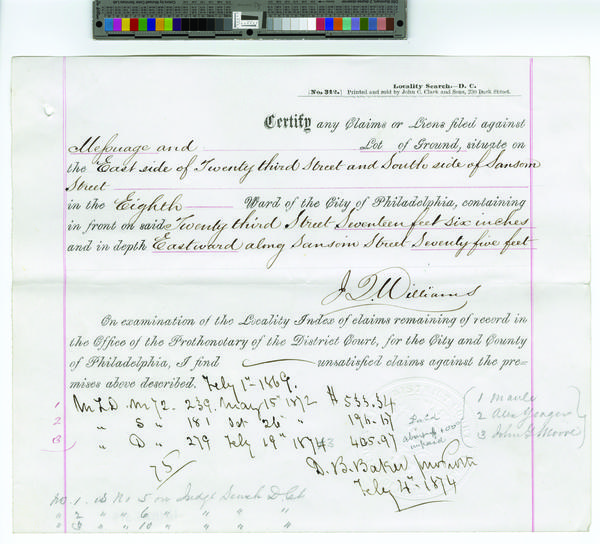 Locality Search.—D. C.
[No. 312.] Printed and sold by John C. Clark and Sons, 230 Dock Street.
Certify any Claims or Liens filed against
Messuage and Lot of Ground, situate on
the East side of Twenty third Street and South side of Sansom
Street
in the Eighth Ward of the City of Philadelphia, containing
in front on said Twenty third Street Seventeen feet six inches
and in depth Eastward along Sansom Street Seventy five feet
J. Q. Williams
On examination of the Locality Index of claims remaining of record in
the Office of the Prothonotary of the District Court, for the City and County
of Philadelphia, I find unsatisfied claims against the pre-
mises above described. Feby 1st 1869.
M.L.D. M 72. 239. May 15th 1872 $533.34
" S " 181 Oct 26th " 196.
" D " 279 Feby 19th 1873 405.97
75
Paid
unpaid
1 Manly
2 Alex
3 John G Moore
D. B. Baker
Feby 4th 1874
No. 1. is No 5 on Judgt Search D. Ct
" 2 " " 6 " " " "
" 3 " " 10 " " " "